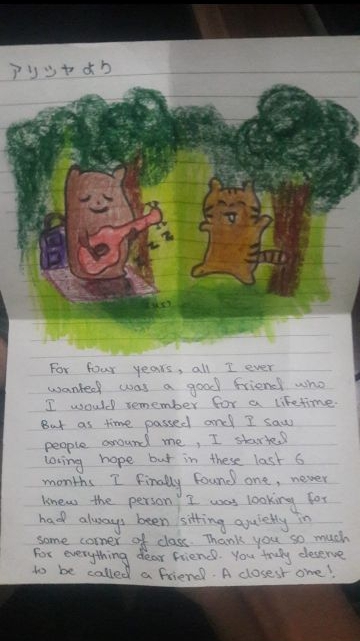 アリツヤより
For four years, all I ever
wanted was a good friend who
I would remember for a lifetime.
But as time passed and I saw
people around me, I started
losing hope but in these last 6
months I finally found one, never
knew the person I was looking for
had always been sitting quietly in
some corner of class. Thank you so much
for everything dear friend. You truly deserve
to be called a friend. A closest one!